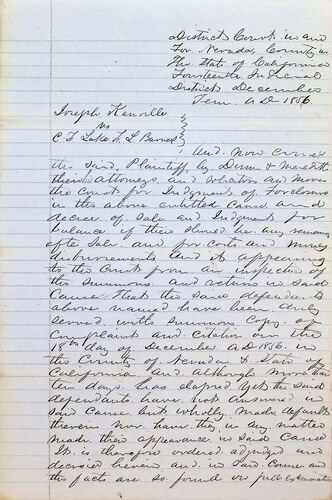 District Court in and
For Nevada, County in
The State of California
Fourteenth Judicial
District December
Term A D 1856
Joseph Kenville
vs
C. F. Lake F. L. Barnes
And Now comes
the said Plaintiff by Dunn & Meredith
their Attorneys and Solicitors and move
the Court for Judgment of Foreclosure
in the above entitled cause and
decree of sale and Judgment for
balance if there should be any remaining
after sale and for costs and
disbursements and it appearing
to the Court from an inspection of
the summons and returns in said
Cause that the said defendants
above named have been duly
served with summons Copy of
Complaint and Citation on the
18th day of December A D 1856 in
the County of Nevada & State of
California and although more than
ten days has elapsed yet the said
defendants have not answered in
said cause but wholly made default
therein nor have they in any matter
made their appearance in said Cause
It is therefore ordered adjudged and
decreed herein and in said cause and
the facts are so found in full